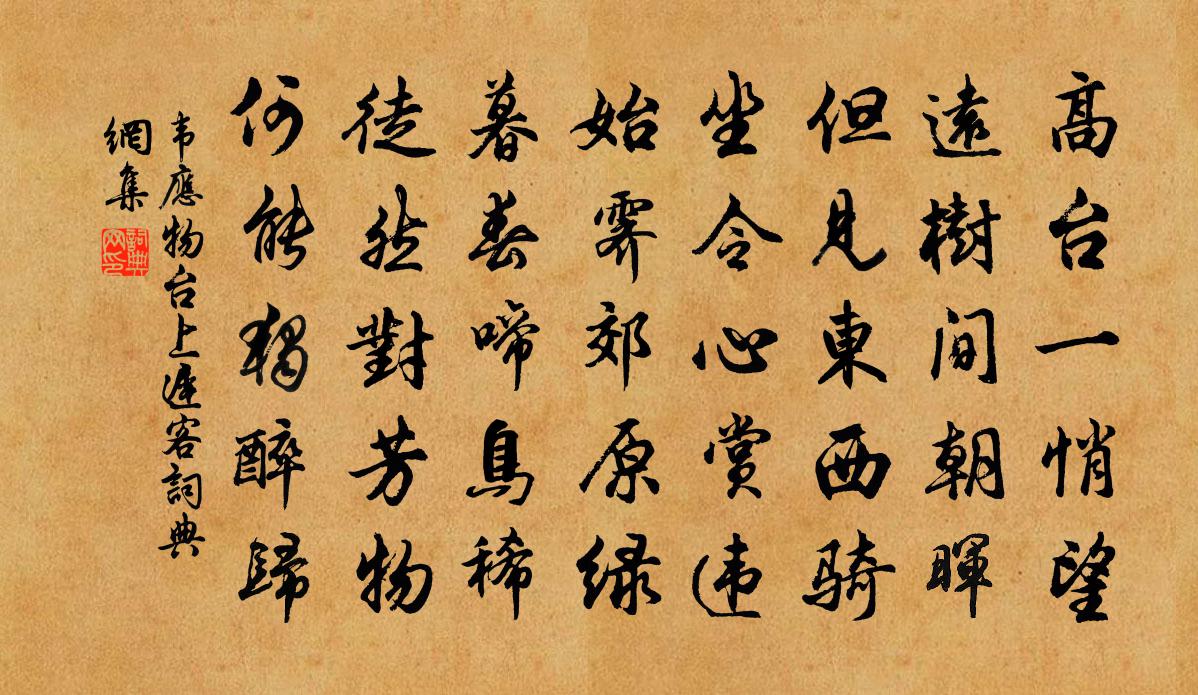 高台一悄望
遠樹間朝暉
但見東西騎
坐令心賞違
始霽郊原绿
暮春啼鳥稀
徒然對芳物
何能獨醉歸
韦應物台上遲客詞典
網集
詞典
网印